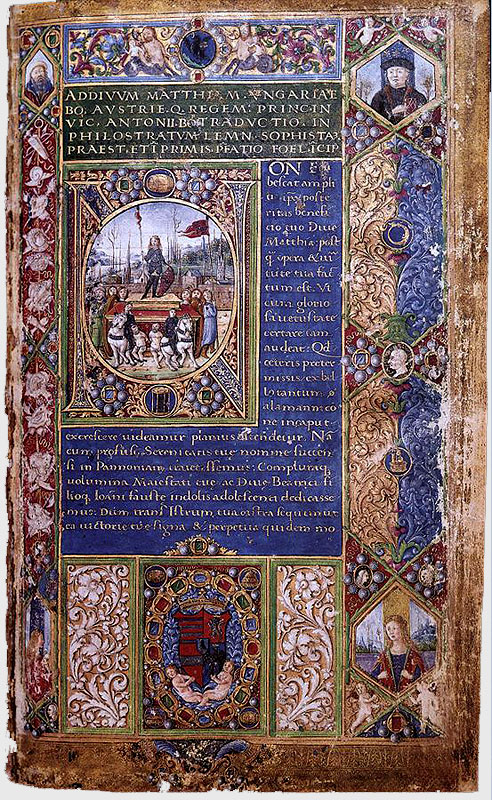 ADDIVVM MATTHIA. M. VNGARIAE
BO: AVSTRIE.Q. REGEM: PRINC IN
VIC. ANTONII BO TRADVCTIO. IN
PHILOSTRATVM LEMN. SOPHISTA
PRAEST. ET I PRIMIS. PFATIO FOELICIP
ON
bescat ampli
poste
ritas benefi
cio quo Diue
Matthia: post
q̃ opera &
tute tua fac
tum est. Vt
cum glorio
sa uetustate
certare iam
audeat. Qd
ceteris preter
missis, ex bil
librantum
alamannico
ne in caput
excrescere uideamur planius ostendetur. Na
cum prosus. Serenitatis tue nomine succen
si in Pannoniam traiecissemus: Compluraq
uolumina Maiestati tue ac Diue Beatrici fi
lioq. Ioani fauste indolis adolescenti dedicasse
mus: Dum trans Istrum tua castra sequimur
ea uictorie tue signa & perpetua quidem mo